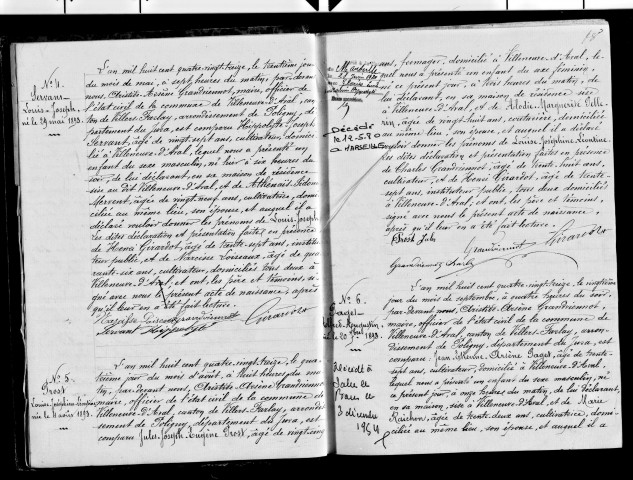 N° 4.
Servant
Louis-Joseph,
né le 29 mai 1893.
L'an mil huit cent quatre-vingt-treize, le trentième jour
du mois de mai, à sept heures du matin, par-devant
nous, Aristide Arsène Grandvionnet, maire, officier de
l'état civil de la commune de Villeneuve-d'Aval, can-
ton de Villers-Farlay, arrondissement de Poligny, dé-
partement du Jura, est comparu Hippolyte Joseph
Servant, âgé de vingt-sept ans, cultivateur, domici-
lié à Villeneuve-d'Aval, lequel nous a présenté un
enfant du sexe masculin, né hier à six heures du
soir, de lui déclarant, en sa maison de résidence
sise au dit Villeneuve-d'Aval, et de
âgée de vingt-neuf ans, cultivatrice, domi-
ciliée au même lieu, son épouse, et auquel il a
déclaré vouloir donner les prénoms de Louis-Joseph.
Les dites déclaration et présentation faites en présence
de Girardot, âgé de trente-sept ans, institu-
teur public, et de Narcisse Loiseaux, âgé de qua-
rante-six ans, cultivateur, domiciliés tous deux à
Villeneuve-d'Aval, et ont, les père et témoins, si-
gné avec nous le présent acte de naissance, après
qu'il leur en a été fait lecture.
Grandvionnet Girardot
Servant Hippolyte
N° 5.
Prost
Louise-Joséphine-Léontine,
née le 11 août 1893.
L'an mil huit cent quatre-vingt-treize, le qua-
torzième jour du mois d'août, à huit heures du ma-
tin, par-devant nous, Aristide Arsène Grandvionnet,
maire, officier de l'état civil de la commune de
Villeneuve-d'Aval, canton de Villers-Farlay, arrondis-
sement de Poligny, département du Jura, est
comparu Jules-Joseph-Eugène Prost, âgé de vingt-cinq
ans, fromager, domicilié à Villeneuve-d'Aval, le-
quel nous a présenté un enfant du sexe féminin,
né ce présent jour, à trois heures du matin, de
lui déclarant, en sa maison de résidence sise
à Villeneuve-d'Aval, et de Elodie-Marguerite Pelle-
rin, âgée de vingt-huit ans, couturière, domiciliée
au même lieu, son épouse, et auquel il a déclaré
vouloir donner les prénoms de Louise-Joséphine-Léontine.
Les dites déclaration et présentation faites en présence
de Charles Grandvionnet, âgé de trente-huit ans,
cultivateur, et de Girardot, âgé de trente-
sept ans, instituteur public, tous deux domiciliés
à Villeneuve-d'Aval, et ont, les père et témoins,
signé avec nous le présent acte de naissance,
après qu'il leur en a été fait lecture.
Prost Jules
Grandvionnet Girardot
Grandvionnet Charles
Décédée
le 12-5-80
à MARSEILLE
N° 6.
Gaget
Alfred-Augustin,
né le 20 7bre 1893.
Décédé à
Salins
3 décembre
1964
L'an mil huit cent quatre-vingt-treize, le vingtième
jour du mois de septembre, à quatre heures du soir,
par-devant nous, Aristide Arsène Grandvionnet,
maire, officier de l'état civil de la commune de
Villeneuve-d'Aval, canton de Villers-Farlay, arron-
dissement de Poligny, département du Jura, est
comparu Jean Arsène Gaget, âgé de trente-
sept ans, cultivateur, domicilié à Villeneuve-d'Aval,
lequel nous a présenté un enfant du sexe masculin, né
ce présent jour, à onze heures du matin, de lui déclarant,
en sa maison, sise à Villeneuve-d'Aval, et de Marie
âgée de trente-deux ans, cultivatrice, domi-
ciliée au même lieu, son épouse, et auquel il a